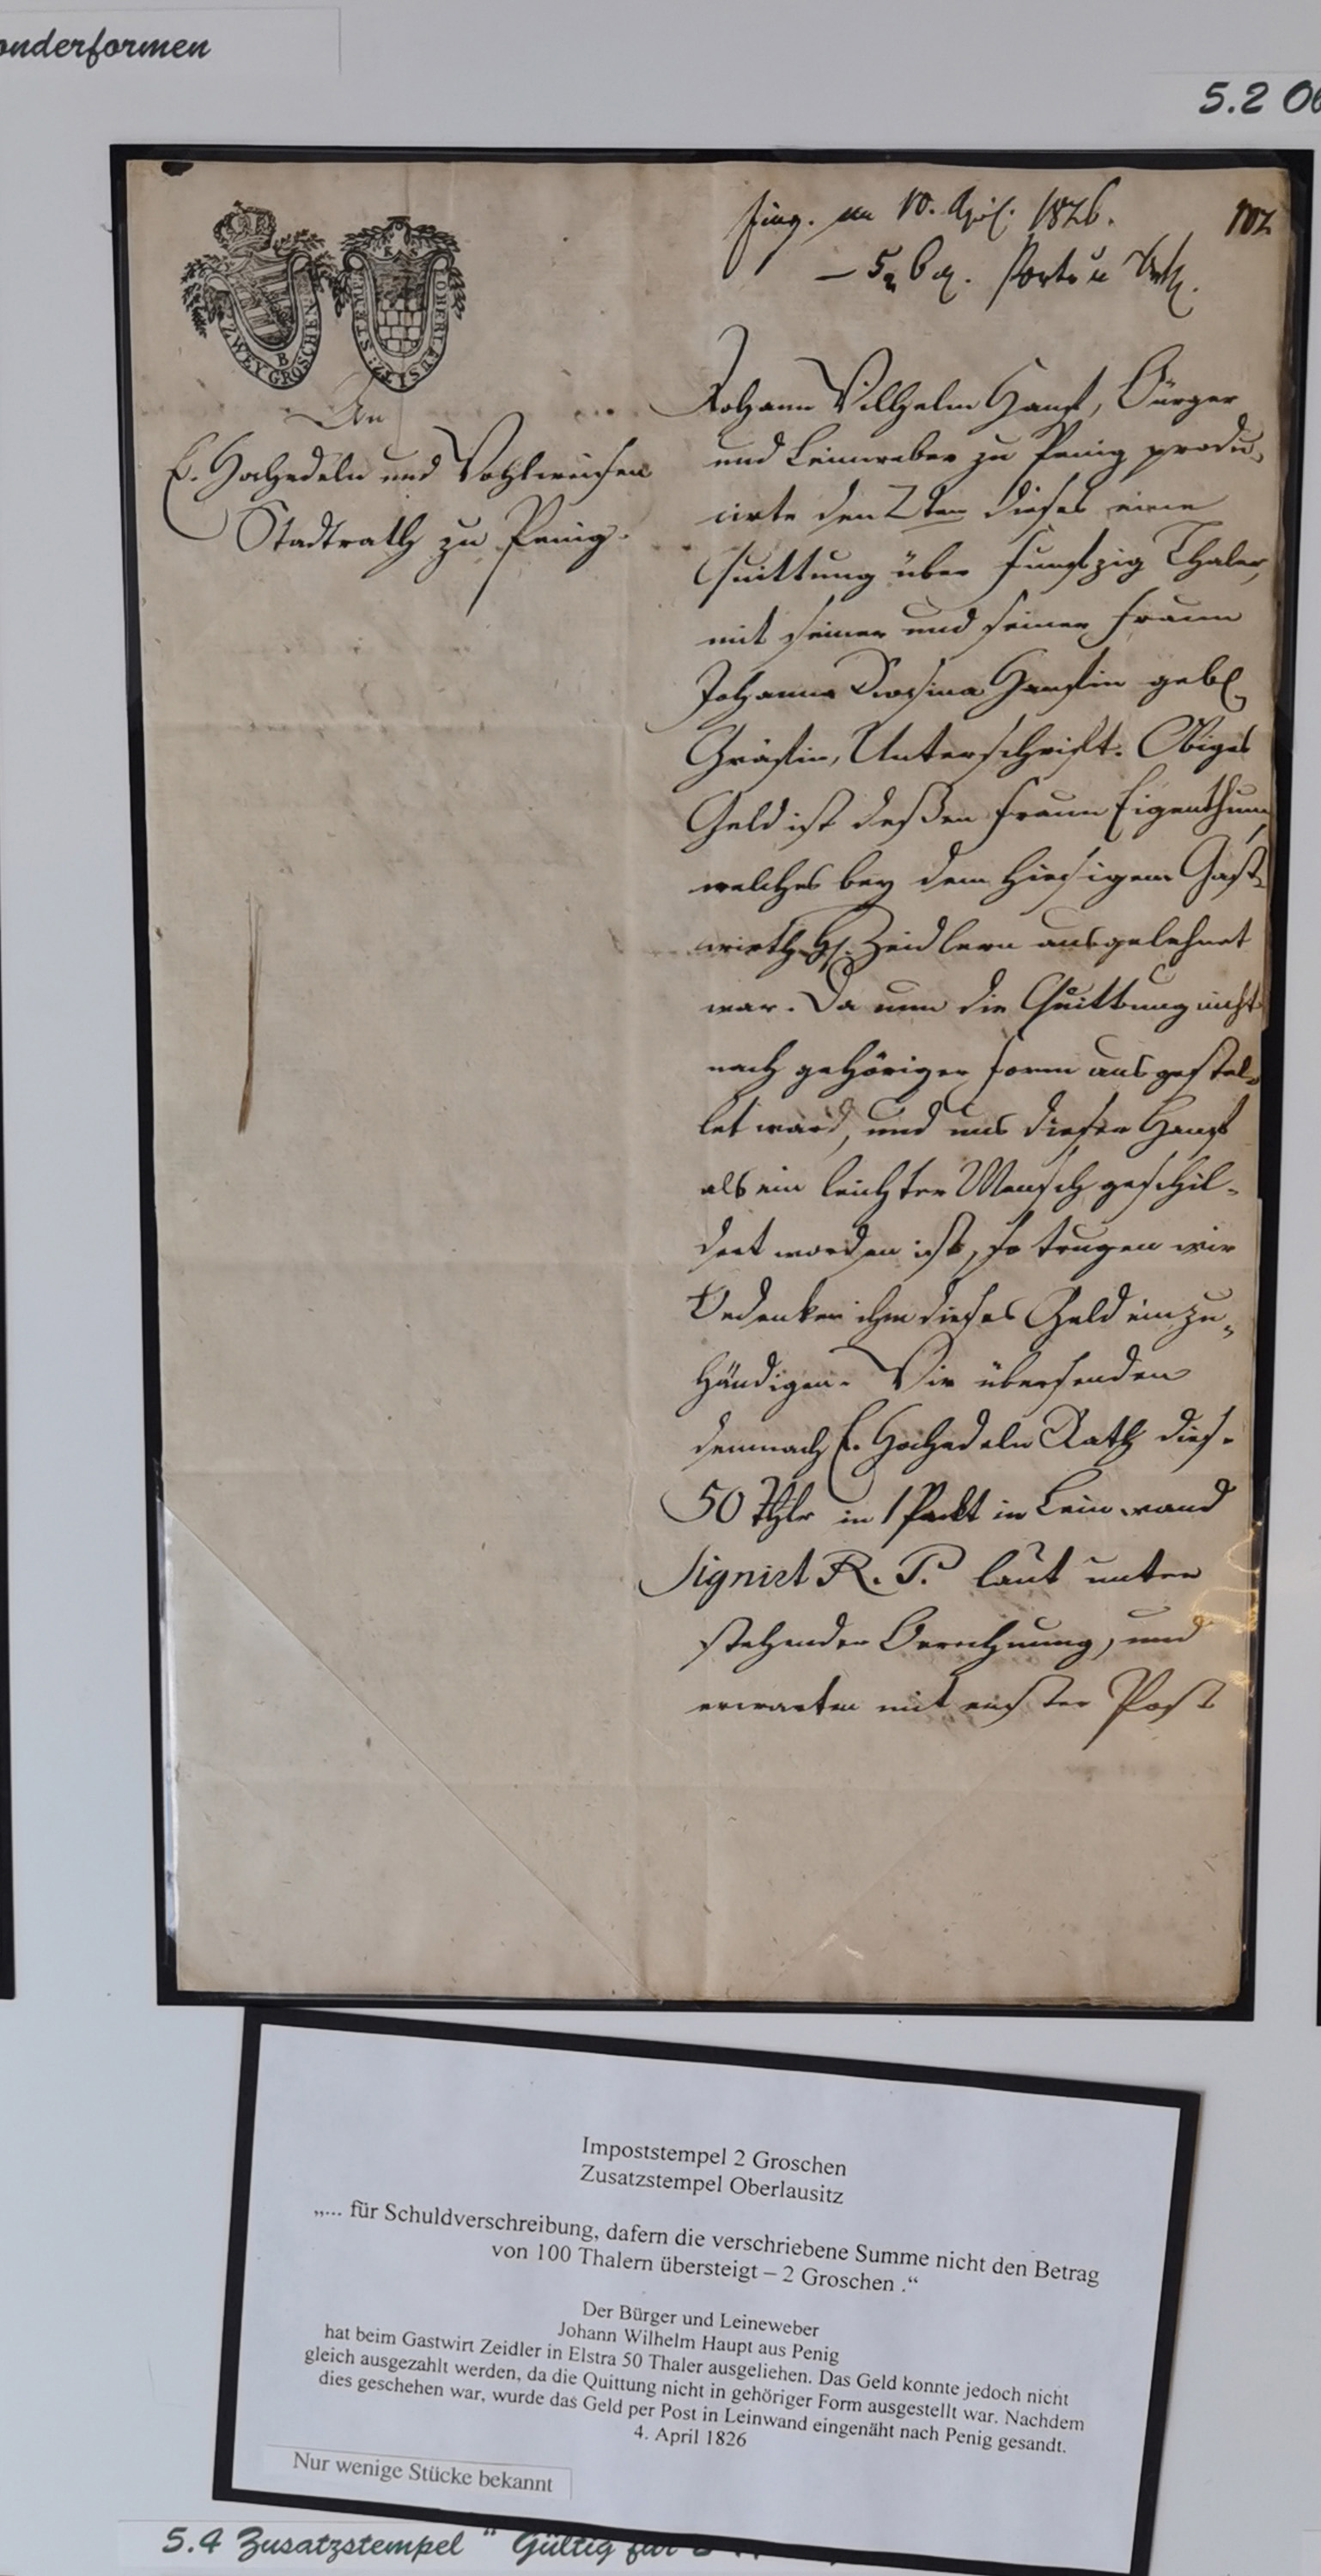 onderformen
5.2 O
ZWEY GROSCHEN
B
OBERLAUSITZ
Eing. am 10. April. 1826.
102
Porto u
An
E. Hochedeln und Wohlweisen
Stadtrath zu Penig.
Johann Wilhelm Haupt, Bürger
und Leinweber zu Penig produ-
cirte den 2ten dieses eine
Quittung über funfzig Thaler,
mit seiner und seiner Frauen
Johanna Rosina Hauptin geb.
Gräfin, Unterschrift. Obiges
Geld ist deßen Frauen Eigenthum,
welches bey dem hiesigen Gast-
wirth H. Zeidlern ausgelehnet
war. Da nun die Quittung nicht
nach gehöriger Form ausgestel-
let ward, und uns dieser Haupt
als ein leichter Mensch geschil-
dert worden ist, so trugen wir
Bedenken ihm dieses Geld einzu-
händigen. Wir übersenden
demnach E. Hochedeln Rath dies.
50 Thlr in 1 Packt in Leinwand
Signirt R. P. laut unten
stehender Berechnung, und
erwarten mit erster Post
Impoststempel 2 Groschen
Zusatzstempel Oberlausitz
„... für Schuldverschreibung, dafern die verschriebene Summe nicht den Betrag
von 100 Thalern übersteigt – 2 Groschen .“
Der Bürger und Leineweber
Johann Wilhelm Haupt aus Penig
hat beim Gastwirt Zeidler in Elstra 50 Thaler ausgeliehen. Das Geld konnte jedoch nicht
gleich ausgezahlt werden, da die Quittung nicht in gehöriger Form ausgestellt war. Nachdem
dies geschehen war, wurde das Geld per Post in Leinwand eingenäht nach Penig gesandt.
4. April 1826
Nur wenige Stücke bekannt
5.4 Zusatzstempel “ Gültig für